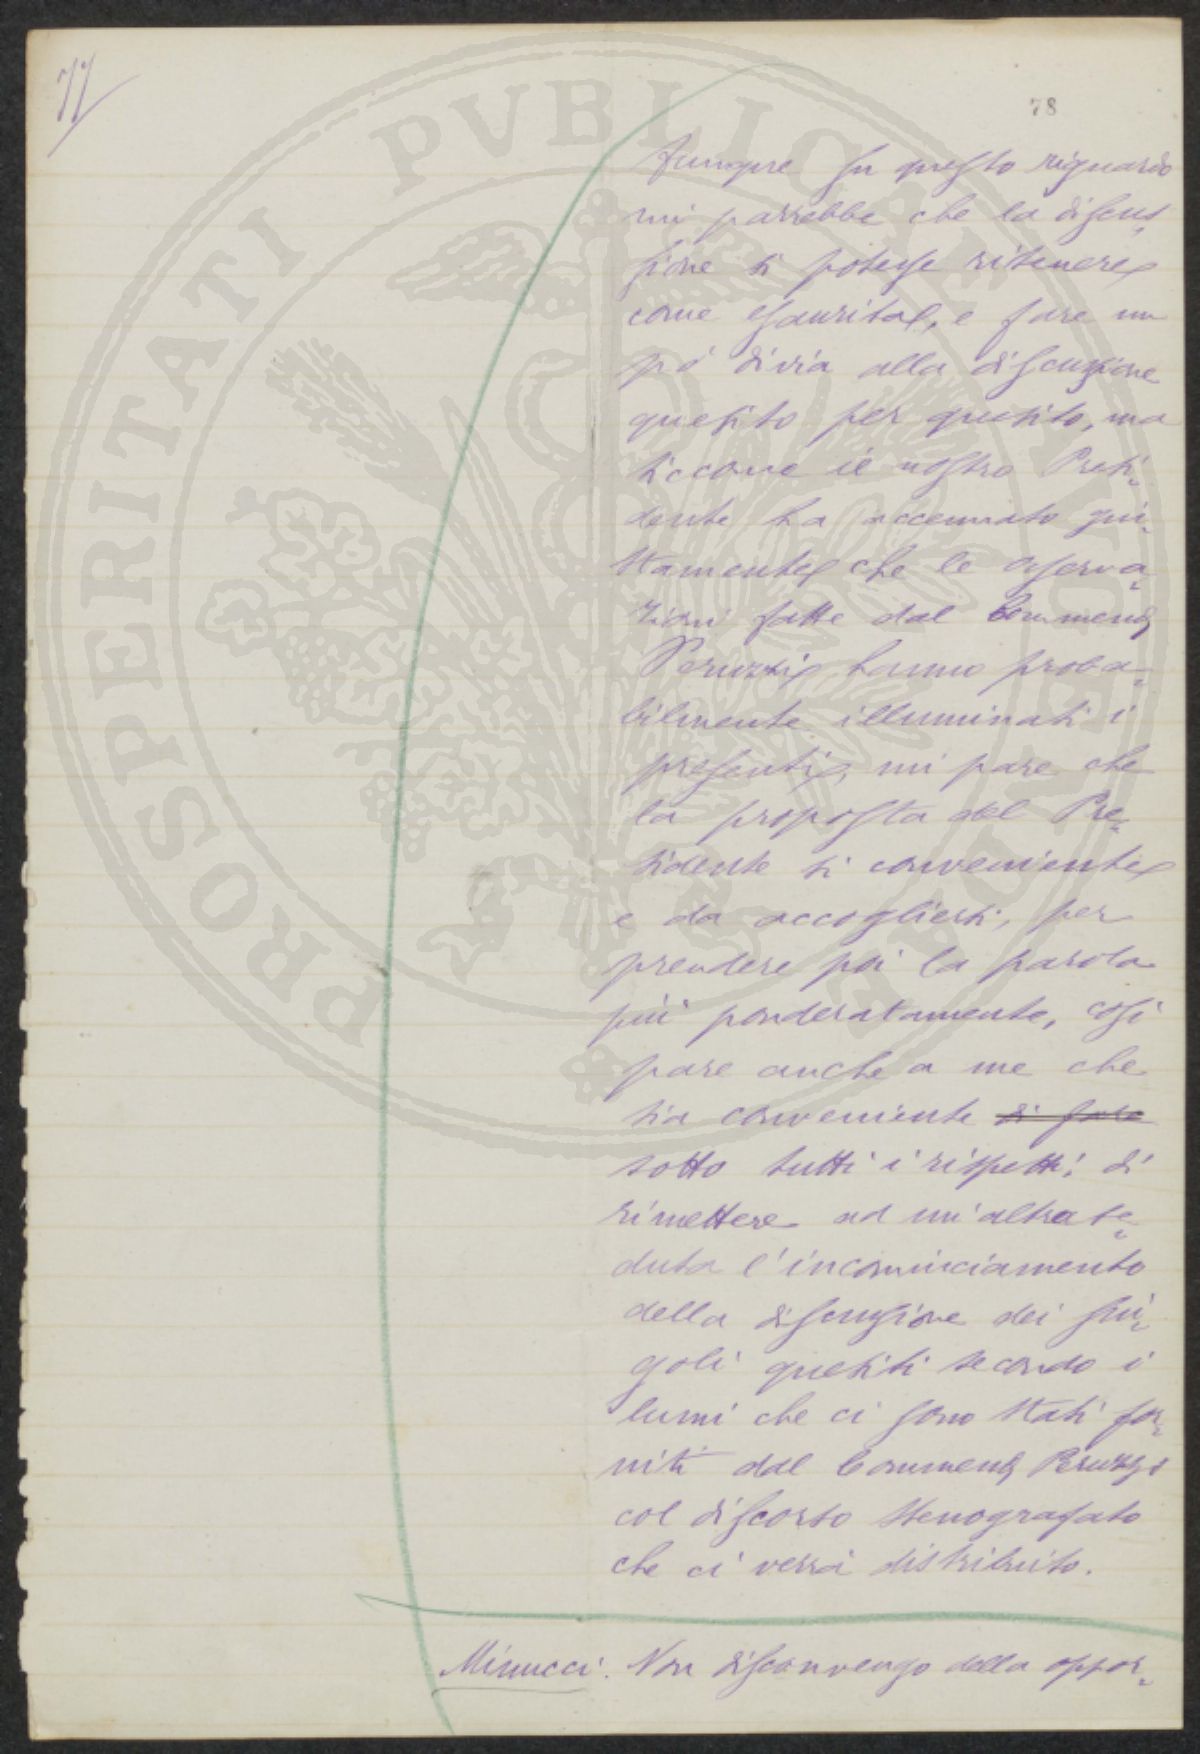 77
78
dunque su questo riguardo
mi parrebbe che la discus-
sione si potesse ritenere
come esaurita, e fare un
pò di via alla discussione
quesito per quesito, ma
siccome il nostro Presi-
dente ha accennato giu-
stamente che le osserva-
zioni fatte dal Commend
Peruzzi, hanno proba-
bilmente illuminati i
presenti, mi pare che
la proposta del Pre-
sidente si conveniente
e da accogliersi, per
prendere poi la parola
più ponderatamente, così
pare anche a me che
sia conveniente di fare
sotto tutti i rispetti, di
rimettere ad un'altra se-
duta l'incominciamento
della discussione dei sin-
goli quesiti secondo i
lumi che ci sono stati for-
niti dal Commend Peruzzi
col discorso stenografato
che ci verrà distribuito.
Minucci. Non disconvengo della oppor-
PROSPERITATI PVBLICAE